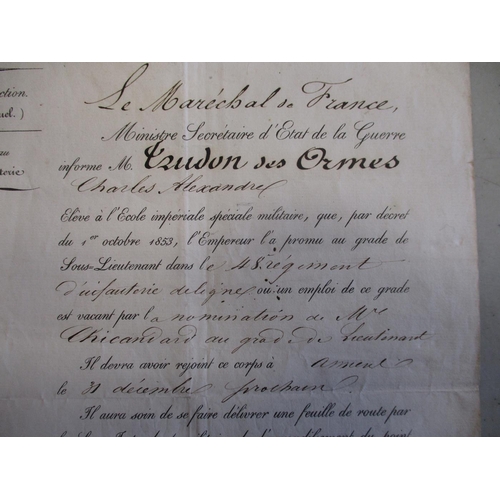 ction.
el.)
au
terie
Le Maréchal de France,
Ministre Secrétaire d'Etat de la Guerre
informe M. Trudon des Ormes
Charles Alexandre
Elève à l'Ecole impériale spéciale militaire, que, par décret
du 1er octobre 1853, l'Empereur l'a promu au grade de
Sous-Lieutenant dans le 48e régiment
d'infanterie de ligne où un emploi de ce grade
est vacant par la nomination de Mr
Chicandard au grade de Lieutenant
Il devra avoir rejoint ce corps à
le 31 décembre prochain.
Il aura soin de se faire délivrer une feuille de route par